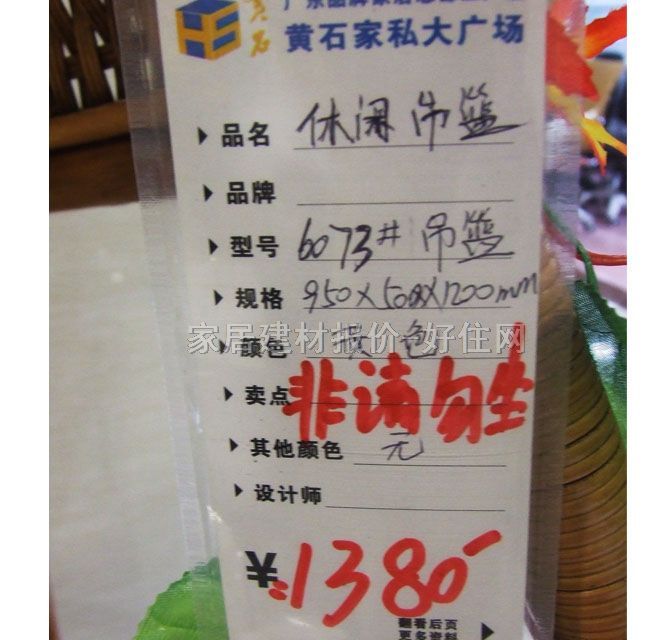 黄石
黄石家私大广场
品名 休闲吊篮
品牌
型号 6073# 吊篮
规格 950×500×1200mm
家居建材报价-好住网
颜色 色
卖点 非请勿坐
其他颜色 元
设计师
¥1380
翻看后页
更多资料